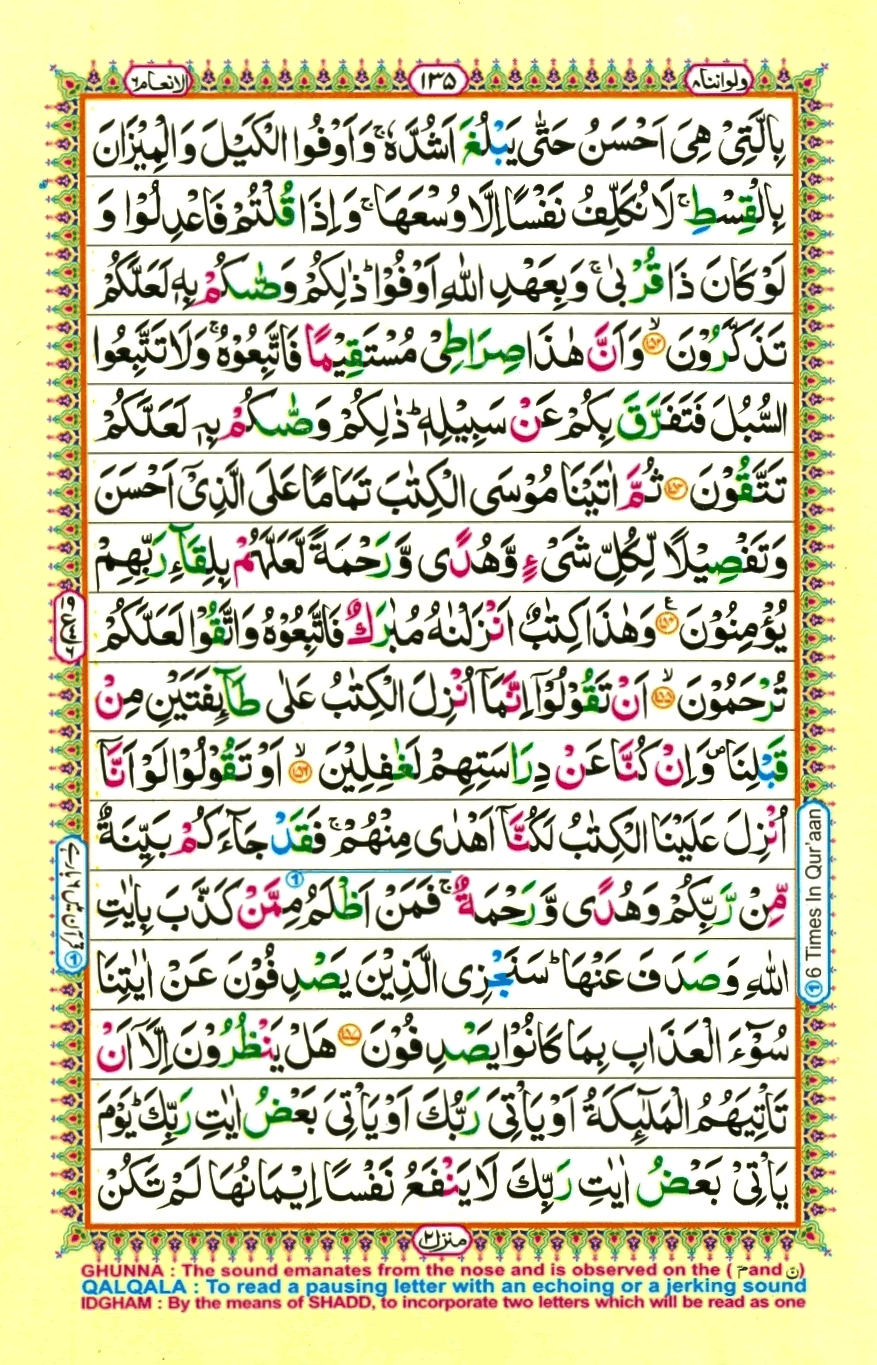 ولواننا۸
۱۳۵
الانعام۶
بِالَّتِیْ هِیَ اَحْسَنُ حَتّٰی یَبْلُغَ اَشُدَّهٗ ۚ وَاَوْفُوا الْکَیْلَ وَالْمِیْزَانَ
بِالْقِسْطِ ۚ لَا نُکَلِّفُ نَفْسًا اِلَّا وُسْعَهَا ۚ وَاِذَا قُلْتُمْ فَاعْدِلُوْا وَ
لَوْ کَانَ ذَا قُرْبٰی ۚ وَبِعَهْدِ اللّٰهِ اَوْفُوْا ؕ ذٰلِکُمْ وَصّٰىکُمْ بِهٖ لَعَلَّکُمْ
تَذَکَّرُوْنَ ۙ﴿۱۵۲﴾ وَاَنَّ هٰذَا صِرَاطِیْ مُسْتَقِیْمًا فَاتَّبِعُوْهُ ۚ وَلَا تَتَّبِعُوا
السُّبُلَ فَتَفَرَّقَ بِکُمْ عَنْ سَبِیْلِهٖ ؕ ذٰلِکُمْ وَصّٰىکُمْ بِهٖ لَعَلَّکُمْ
تَتَّقُوْنَ ﴿۱۵۳﴾ ثُمَّ اٰتَیْنَا مُوْسَی الْکِتٰبَ تَمَامًا عَلَی الَّذِیْۤ اَحْسَنَ
وَتَفْصِیْلًا لِّکُلِّ شَیْءٍ وَّهُدًی وَّرَحْمَةً لَّعَلَّهُمْ بِلِقَآءِ رَبِّهِمْ
یُؤْمِنُوْنَ ﴿۱۵۴﴾ ع وَهٰذَا کِتٰبٌ اَنْزَلْنٰهُ مُبٰرَكٌ فَاتَّبِعُوْهُ وَاتَّقُوْا لَعَلَّکُمْ
تُرْحَمُوْنَ ۙ﴿۱۵۵﴾ اَنْ تَقُوْلُوْۤا اِنَّمَاۤ اُنْزِلَ الْکِتٰبُ عَلٰی طَآىِٕفَتَیْنِ مِنْ
قَبْلِنَا ۪ وَاِنْ کُنَّا عَنْ دِرَاسَتِهِمْ لَغٰفِلِیْنَ ۙ﴿۱۵۶﴾ اَوْ تَقُوْلُوْا لَوْ اَنَّاۤ
اُنْزِلَ عَلَیْنَا الْکِتٰبُ لَکُنَّاۤ اَهْدٰی مِنْهُمْ ۚ فَقَدْ جَآءَکُمْ بَیِّنَةٌ
مِّنْ رَّبِّکُمْ وَهُدًی وَّرَحْمَةٌ ۚ فَمَنْ اَظْلَمُ مِمَّنْ کَذَّبَ بِاٰیٰتِ
اللّٰهِ وَصَدَفَ عَنْهَا ؕ سَنَجْزِی الَّذِیْنَ یَصْدِفُوْنَ عَنْ اٰیٰتِنَا
سُوْٓءَ الْعَذَابِ بِمَا کَانُوْا یَصْدِفُوْنَ ﴿۱۵۷﴾ هَلْ یَنْظُرُوْنَ اِلَّاۤ اَنْ
تَاْتِیَهُمُ الْمَلٰٓىِٕکَةُ اَوْ یَاْتِیَ رَبُّكَ اَوْ یَاْتِیَ بَعْضُ اٰیٰتِ رَبِّكَ ؕ یَوْمَ
یَاْتِیْ بَعْضُ اٰیٰتِ رَبِّكَ لَا یَنْفَعُ نَفْسًا اِیْمَانُهَا لَمْ تَکُنْ
قرآن میں ۶ بار ہے ①
①6 Times In Qur'aan
منزل۲
GHUNNA : The sound emanates from the nose and is observed on the ( م and ن )
QALQALA : To read a pausing letter with an echoing or a jerking sound
IDGHAM : By the means of SHADD, to incorporate two letters which will be read as one